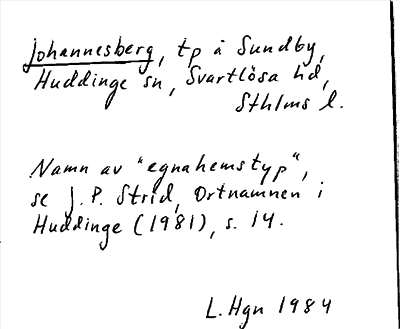 Johannesberg, tp å Sundby,
Huddinge sn, Svartlösa hd,
Sthlms l.
Namn av "egnahemstyp",
se J. P. Strid, Ortnamnen i
Huddinge (1981), s. 14.
L. Hgn 1984